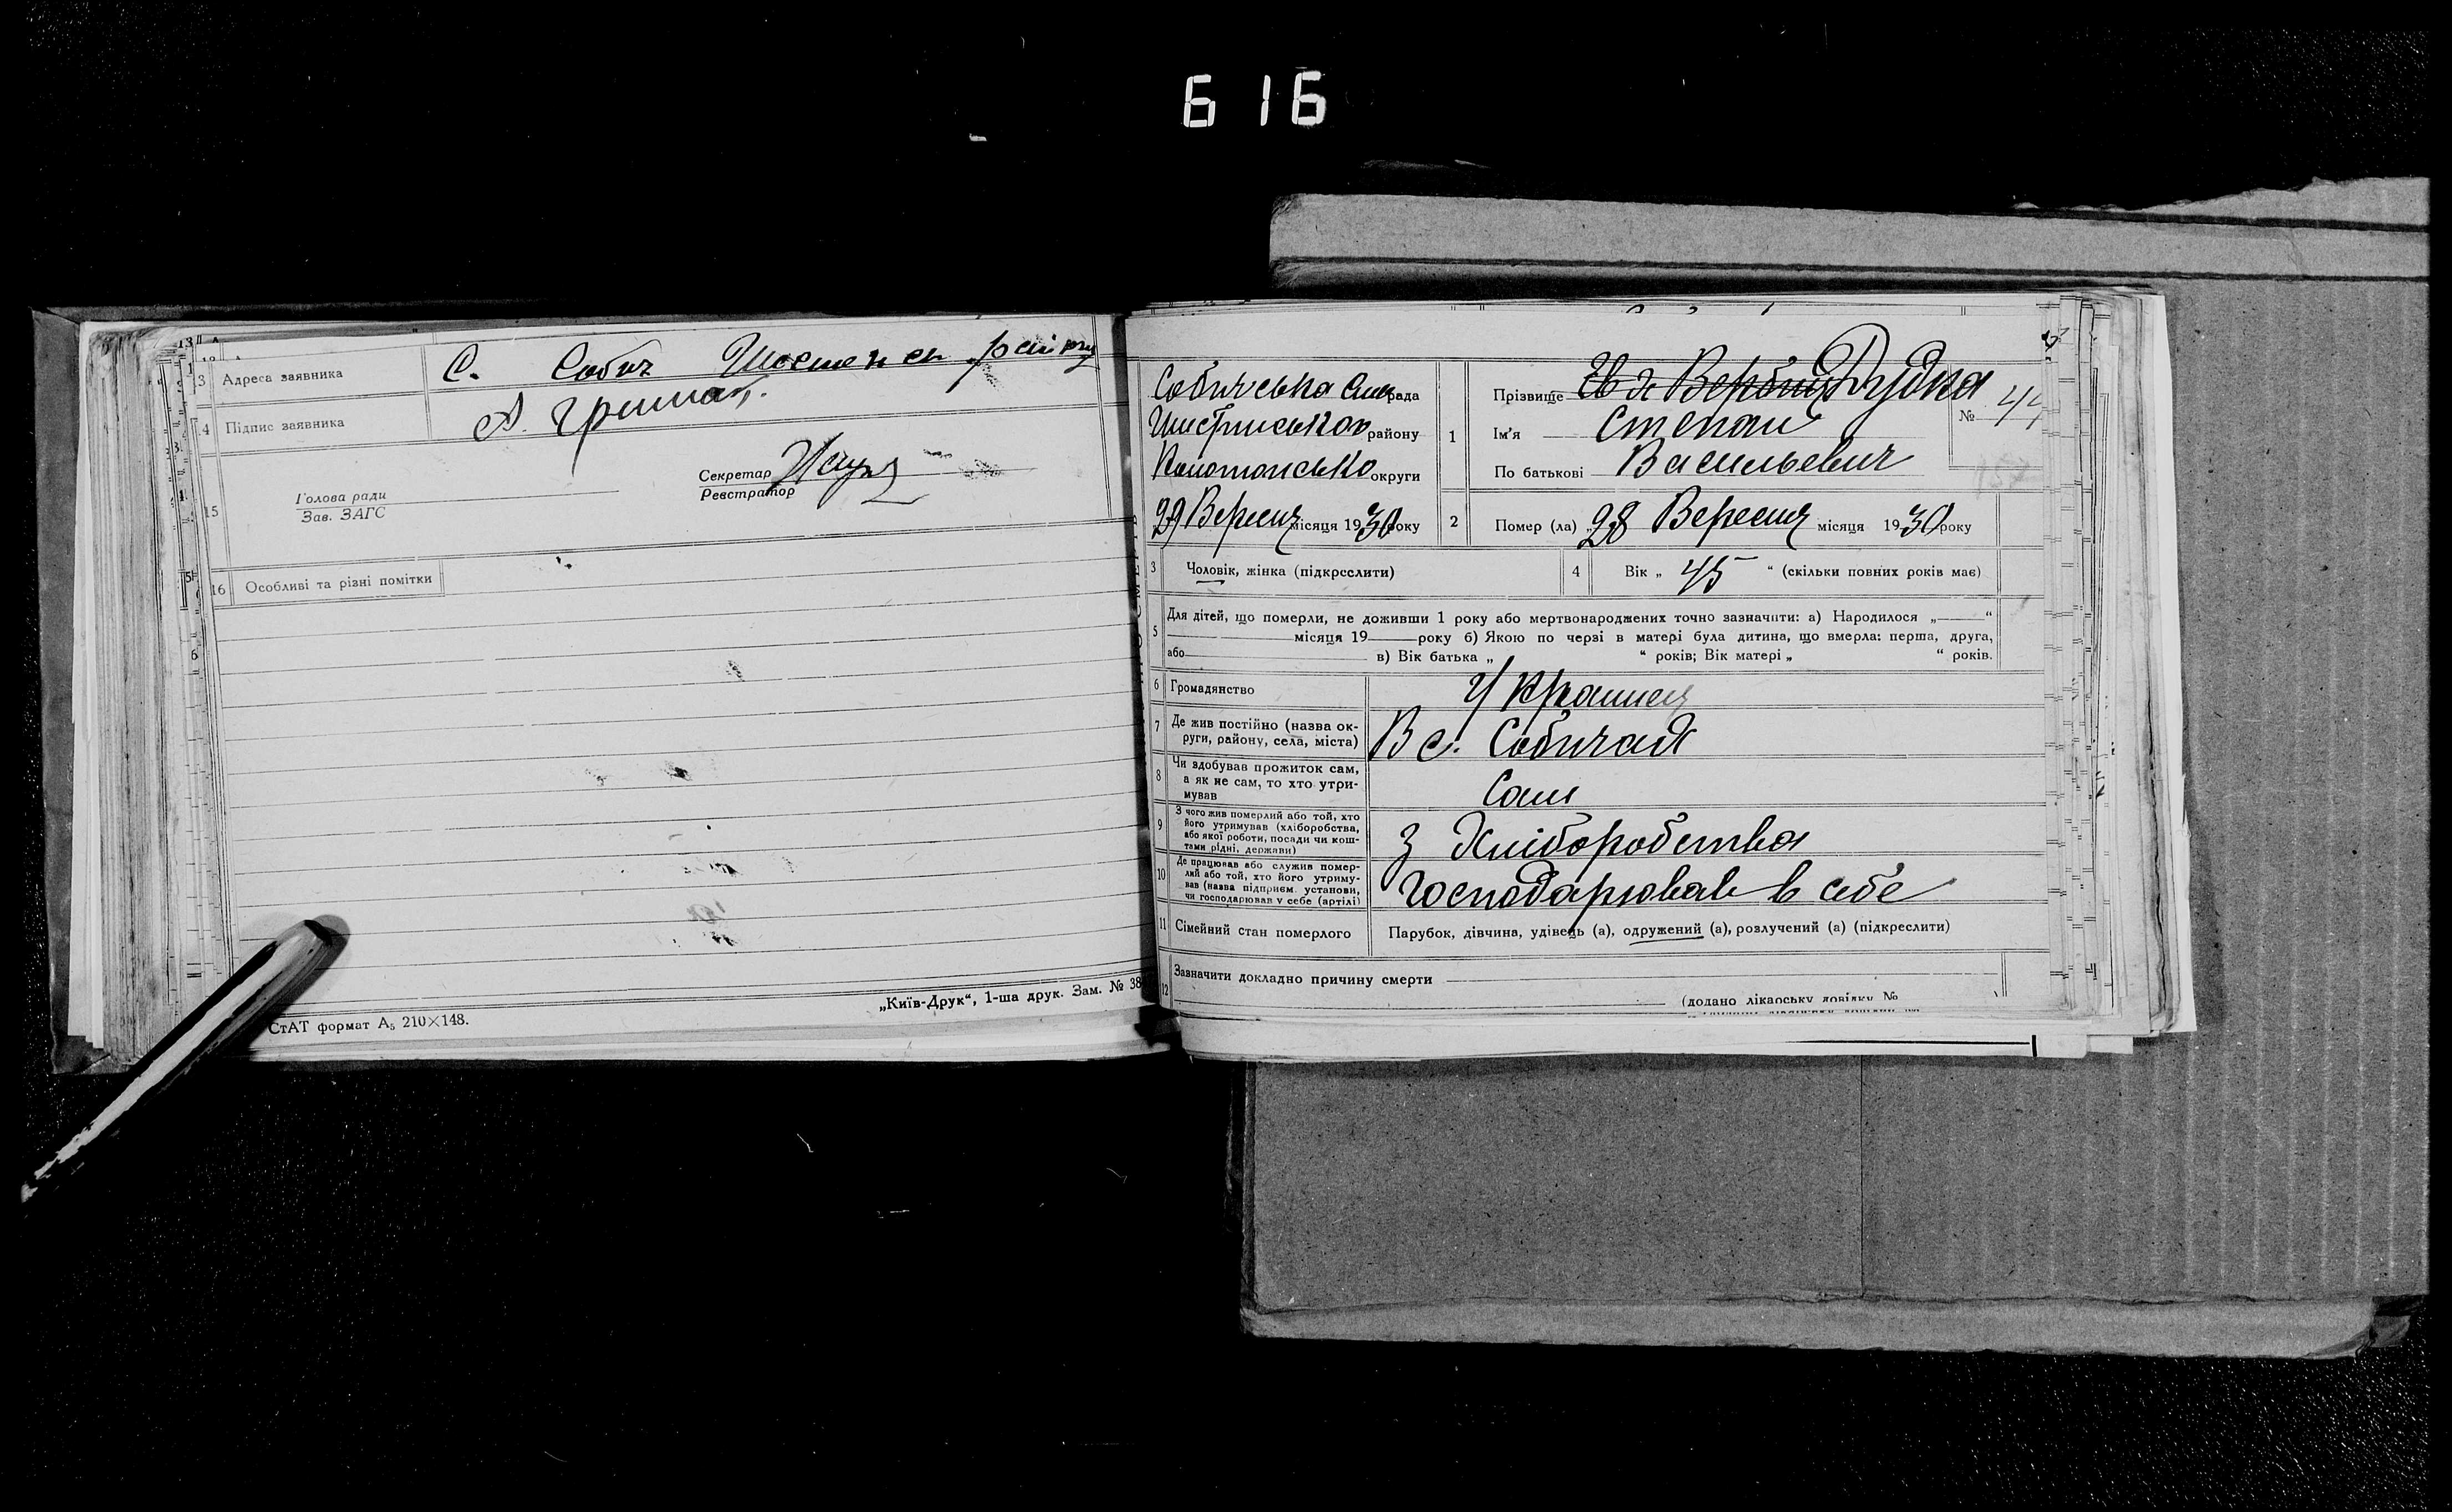 616
13 Адреса заявника С. Собич Шостенск району
14 Підпис заявника А. Гришай
Секретар
Реєстратор
15 Голова ради
Зав. ЗАГС
16 Особливі та різні помітки
„Київ-Друк“, 1-ша друк. Зам. № 38
СтАТ формат А₅ 210×148.
Собичська Сільрада
району
Конотопсько округи
29 Вересня місяця 1930 року
1 Прізвище Дудка
№ 44
Ім'я Степан
По батькові Васильевич
2 Помер (ла) „28 Вересня місяця 1930 року
3 Чоловік, жінка (підкреслити)
4 Вік „ 45 “ (скільки повних років має)
5 Для дітей, що померли, не доживши 1 року або мертвонароджених точно зазначити: а) Народилося „ “
місяця 19 року б) Якою по черзі в матері була дитина, що вмерла: перша, друга,
або в) Вік батька „ “ років; Вік матері „ “ років.
6 Громадянство Украинец
7 Де жив постійно (назва ок-
руги, району, села, міста) В с. Собичах
8 Чи здобував прожиток сам,
а як не сам, то хто утри-
мував Сам
9 З чого жив померлий або той, хто
його утримував (хліборобства,
або якої роботи, посади чи кош-
тами рідні, держави) З Хліборобства
10 Де працював або служив помер-
лий або той, хто його утриму-
вав (назва підприєм. установи,
чи господарював у себе (артілі) Господарював в себе
11 Сімейний стан померлого Парубок, дівчина, удівець (а), одружений (а), розлучений (а) (підкреслити)
12 Зазначити докладно причину смерти
(додано лікарську довідку №